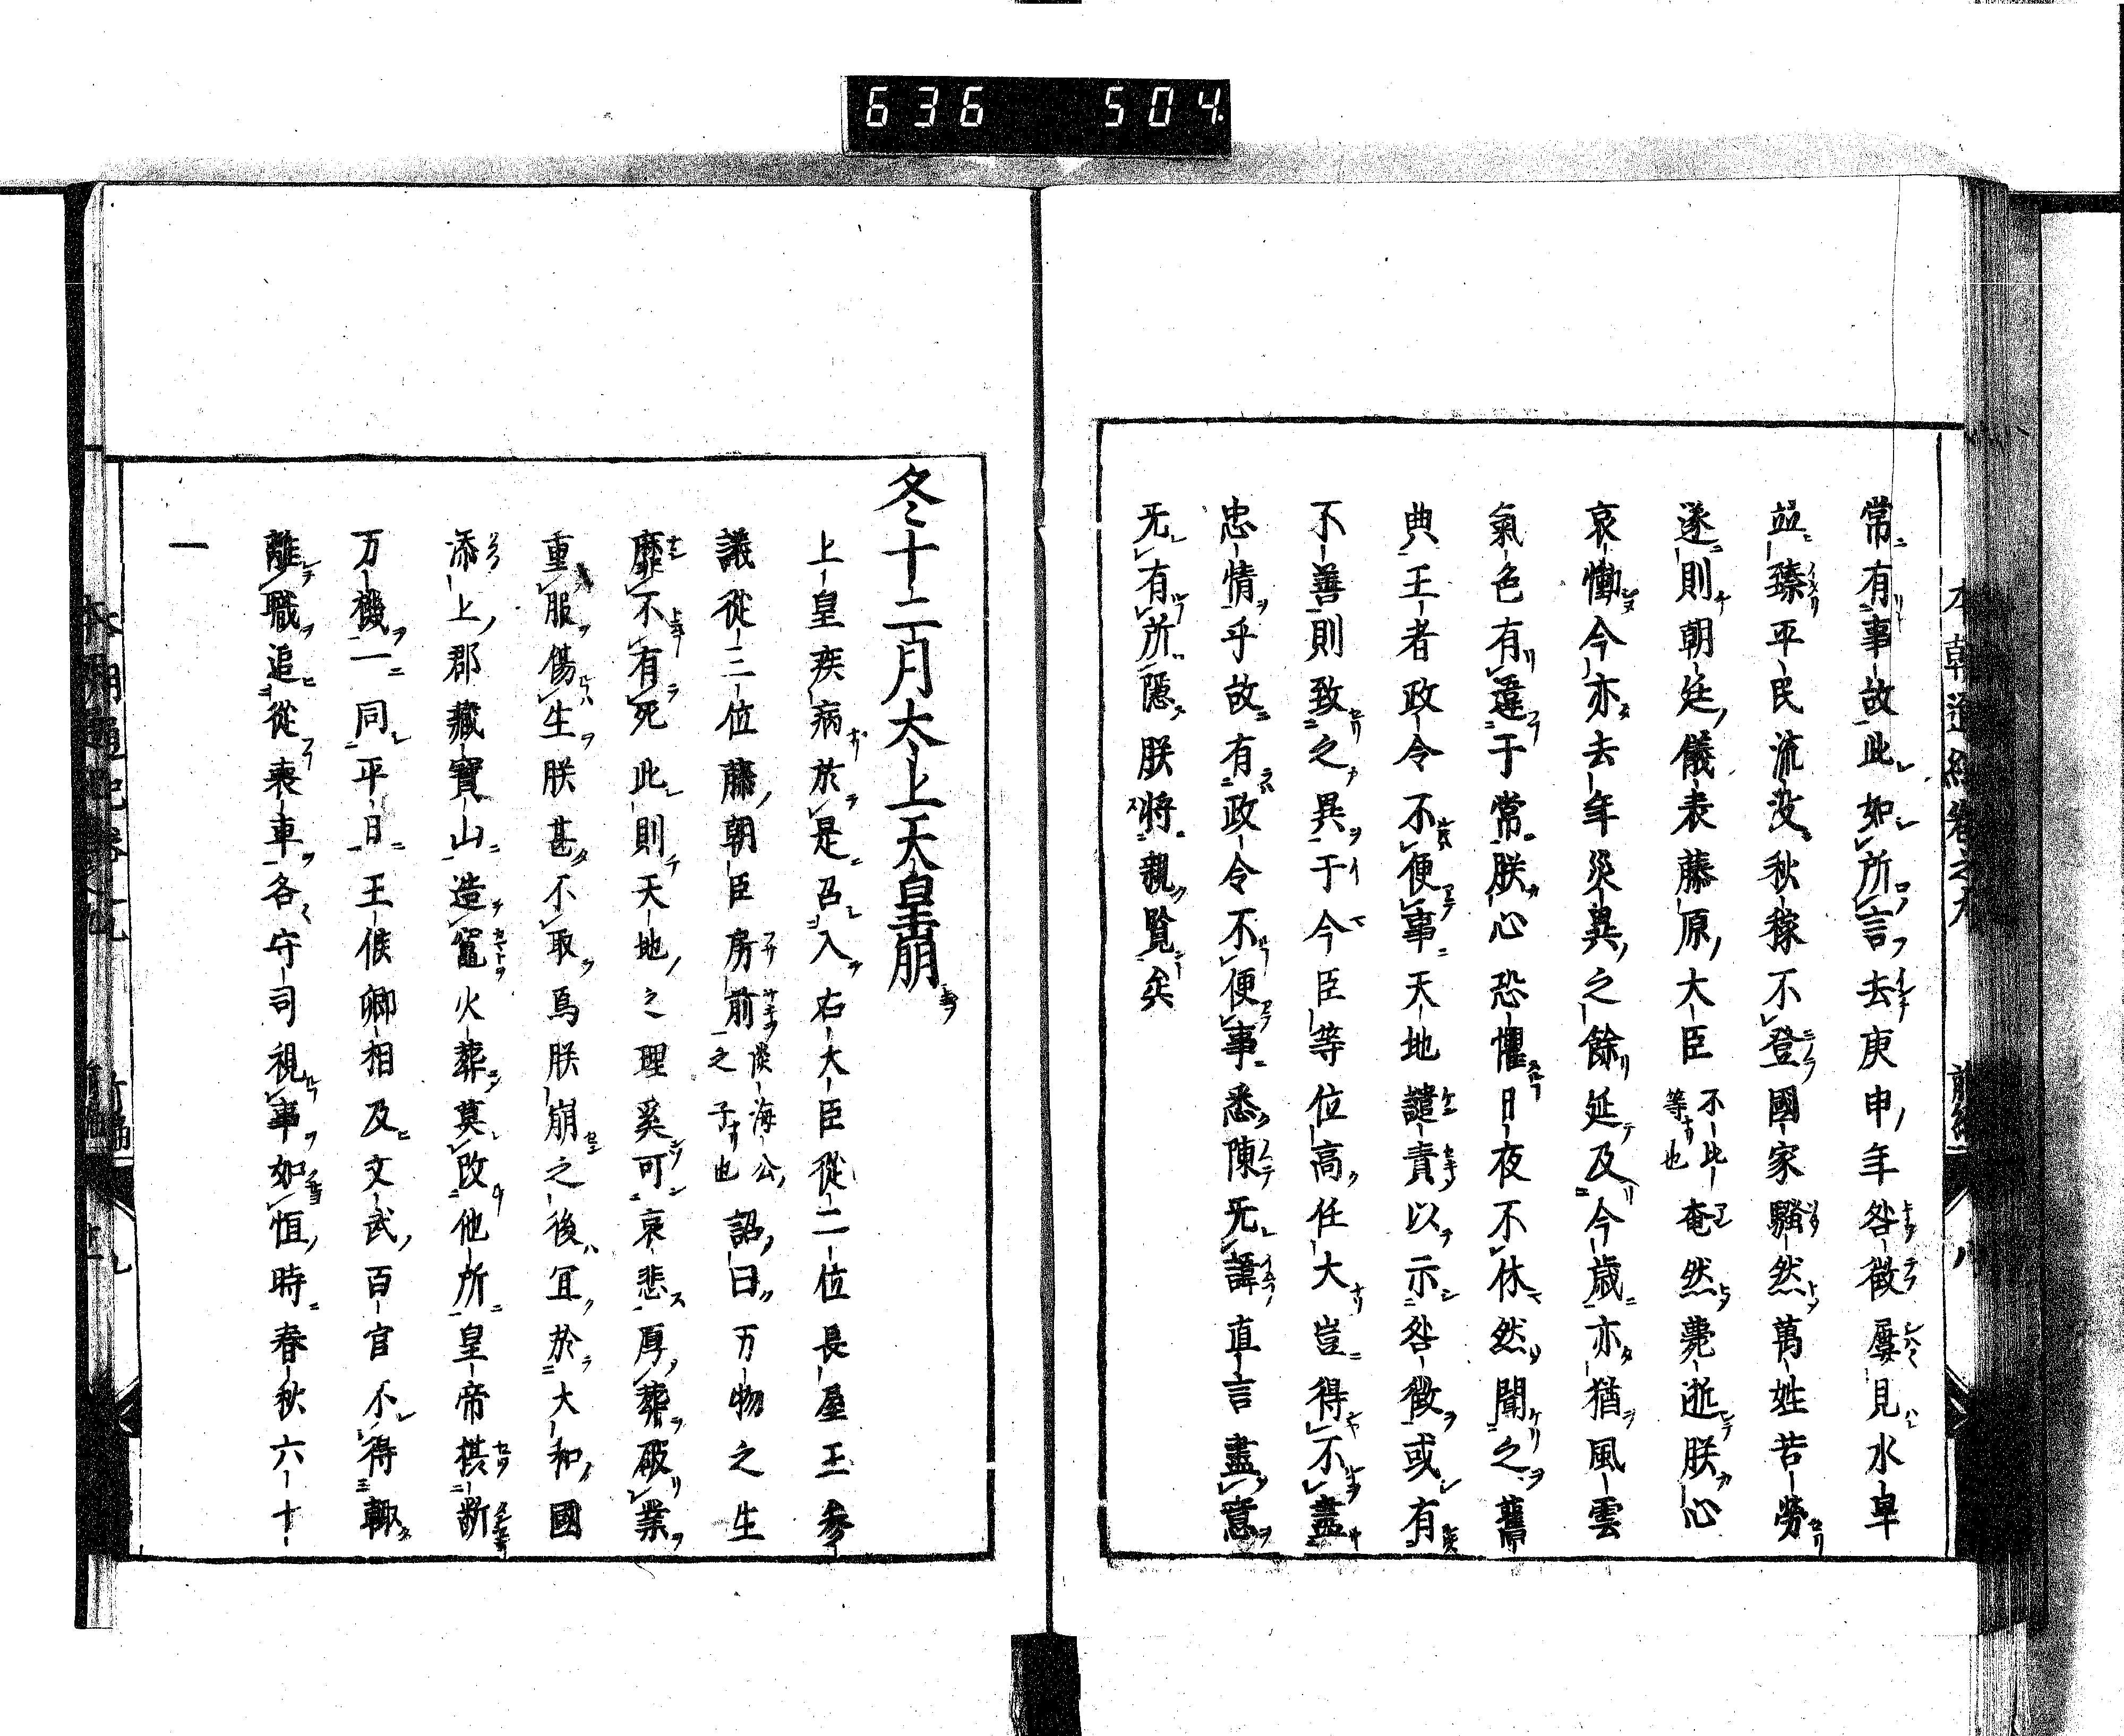 636 504
常有事故此如所言去庚申年咎徴屢見水旱
並臻平民流没秋稼不登國家騒然萬姓苦勞
遂則朝廷儀表藤原大臣不比等也奄然薨逝朕心
哀慟今亦去年災異之餘延及今歳亦猶風雲
氣色有違于常朕心恐懼日夜不休然聞之舊
典王者政令不便事天地譴責以示咎徴或有
不善則致之異于今臣等位高任大豈得不盡
忠情乎故有政令不便事悉陳无諱直言盡意
无有所隱朕将親覧矣
冬十二月太上天皇崩
上皇疾病於是召入右大臣從二位長屋王參
議從三位藤朝臣房前淡海公之子也詔曰万物之生
靡不有死此則天地之理奚可哀悲厚葬破業
重服傷生朕甚不取焉朕崩之後冝於大和國
添上郡藏寳山造竃火葬莫改他所皇帝棋斷
万機一同平日王侯卿相及文武百官不得輙
離職追從喪車各守司視事如恒時春秋六十
一